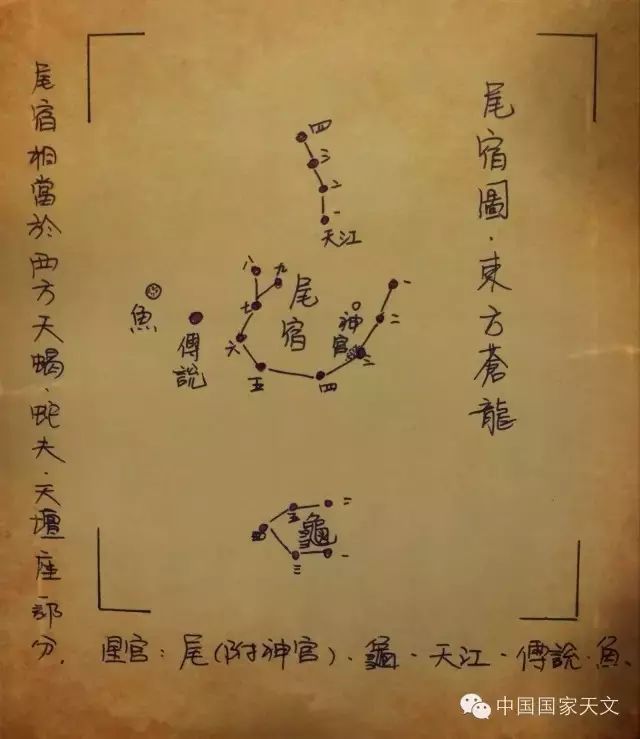 尾宿圖·東方蒼龍
尾宿相當於西方天蝎·蛇夫·天壇座部分.
四
三
二
一
天江
八
九
七
六
五
四
三
二
一
尾宿
神宮
魚
傅説
二
五
四
三
一
龜
星官:尾(附神宮)、龜·天江·傅説·魚、
中国国家天文